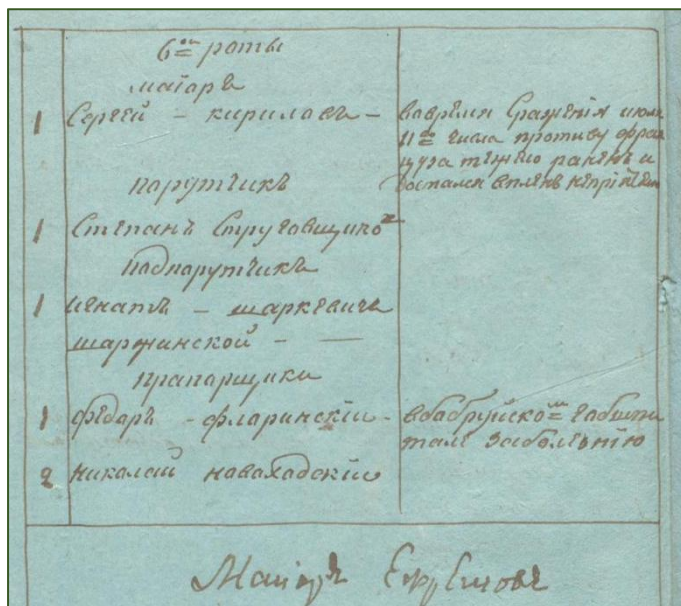 6ой роты
маіоръ
1 Сергей - кирилавъ - вовремя сраженія июля
11го числа противу фран
цуга тежело раненъ и
остался вплену непріятеля
парутчикъ
1 Степанъ Струговщиков
падпарутчикъ
1 игнатъ - шаркевичъ
шаржинской - —
прапарщики
1 федаръ - фларинскіи - вбабруйском гаВшпи
тале заболезнию
2 николай новахадскіи
Маиоръ Ефимовъ